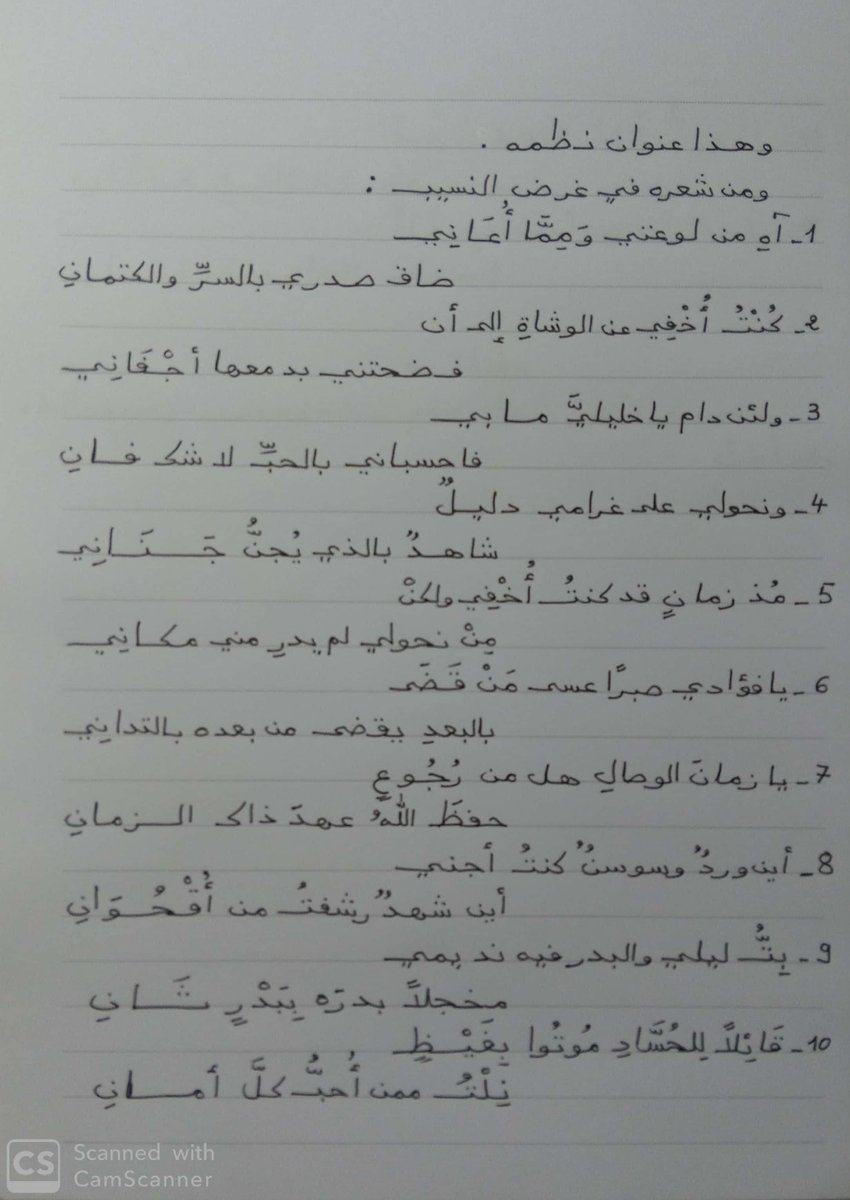 وهذا عنوان نظمه .
ومن شعره في غرض النسيب :
1- آهِ من لوعتي وَمِمَّا أُعَانِي
ضاق صدري بالسرِّ والكتمانِ
2- كُنْتُ أُخْفِي عن الوشاةِ إلى أن
فضحتني بدمعها أجْفَانِي
3- ولئن دام يا خليليَّ ما بي
فاحسباني بالحبِّ لا شك فانِ
4- ونحولي على غرامي دليلٌ
شاهدٌ بالذي يُجنُّ جَنَانِي
5- مُذ زمانٍ قد كنتُ أُخْفِي ولكنْ
مِنْ نحولي لم يدرِ مني مكانِي
6- يا فؤادي صبرًا عسى مَنْ قَضَى
بالبعدِ يقضى من بعده بالتدانِي
7- يا زمانَ الوصالِ هل من رُجُوعٍ
حفظَ اللهُ عهدَ ذاك الزمانِ
8- أين وردٌ وسوسنٌ كنتُ أجني
أين شهدٌ رشفتُ من أُقْحُوَانِ
9- بِتُّ ليلي والبدر فيه نديمي
مخجلاً بدرَه بِبَدْرٍ ثَانِ
10- قَائِلاً لِلحُسَّادِ مُوتُوا بِغَيْظٍ
نِلْتُ ممن أُحبُّ كلَّ أمانِ
CS Scanned with
CamScanner